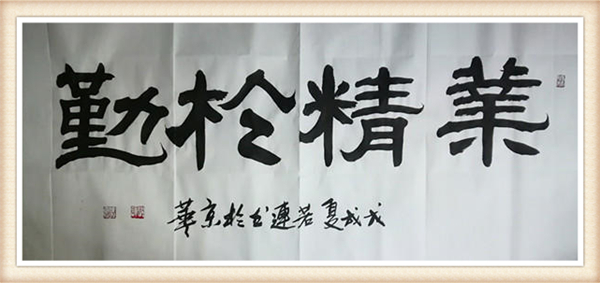 業精於勤
戊戌夏若連书於京華